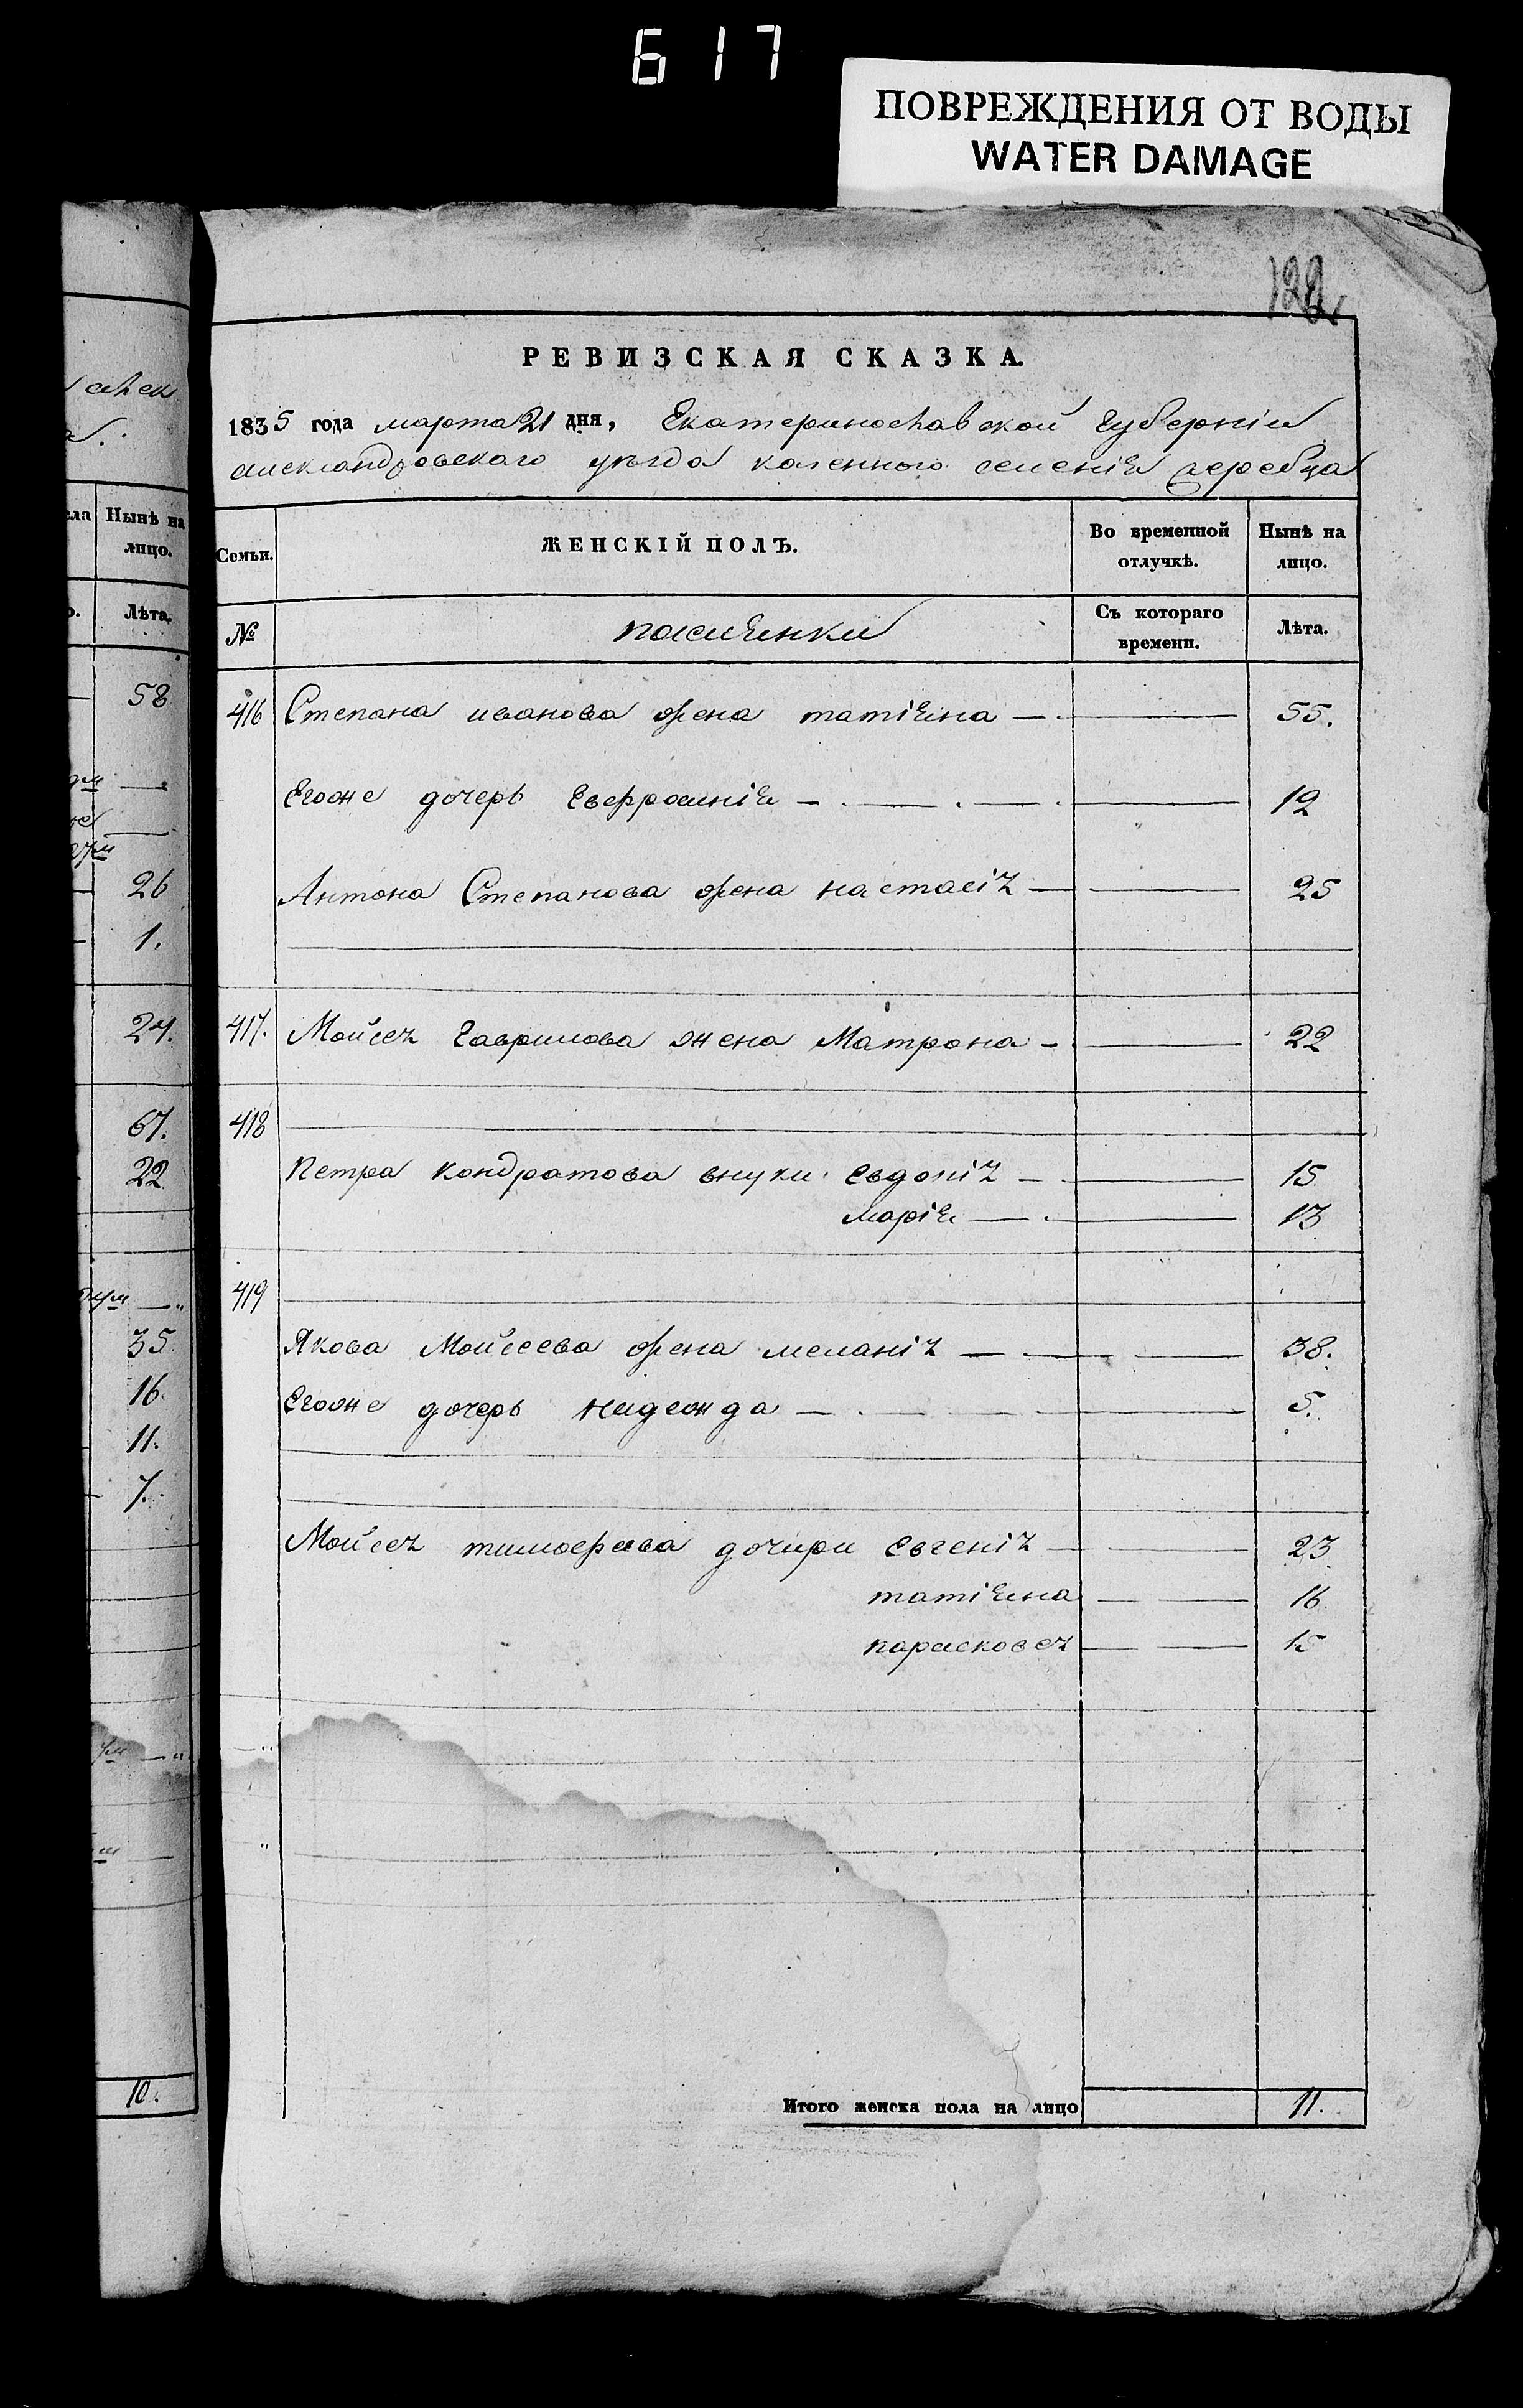 617
ПОВРЕЖДЕНИЯ ОТ ВОДЫ
WATER DAMAGE
РЕВИЗСКАЯ СКАЗКА.
1835 года марта 21 дня, Екатеринославской губерніи
александровскаго уѣзда казенного селенія жеребца
ела Нынѣ на лицо.
Лѣта.
58
26
1.
24.
67.
22
35
16.
11.
7.
10.
Семьи. ЖЕНСКІЙ ПОЛЪ. Во временной отлучкѣ. Нынѣ на лицо.
№ Съ котораго времени. Лѣта.
416 Степана иванова жена татіяна — 55.
Егоже дочерь Евфросинія — 12
Антона Степанова жена настасія — 25
417. Мойсея гаврилова жена Матрона — 22
418
Петра кондратова внуки евдокія — 15
марія — 13
419
Якова Мойсеева жена меланія — 38.
Егоже дочерь надежда — 5.
Мойсея тимофеева дочери евгенія — 23
татіяна — 16
парасковея — 15
Итого женска пола на лицо 11.